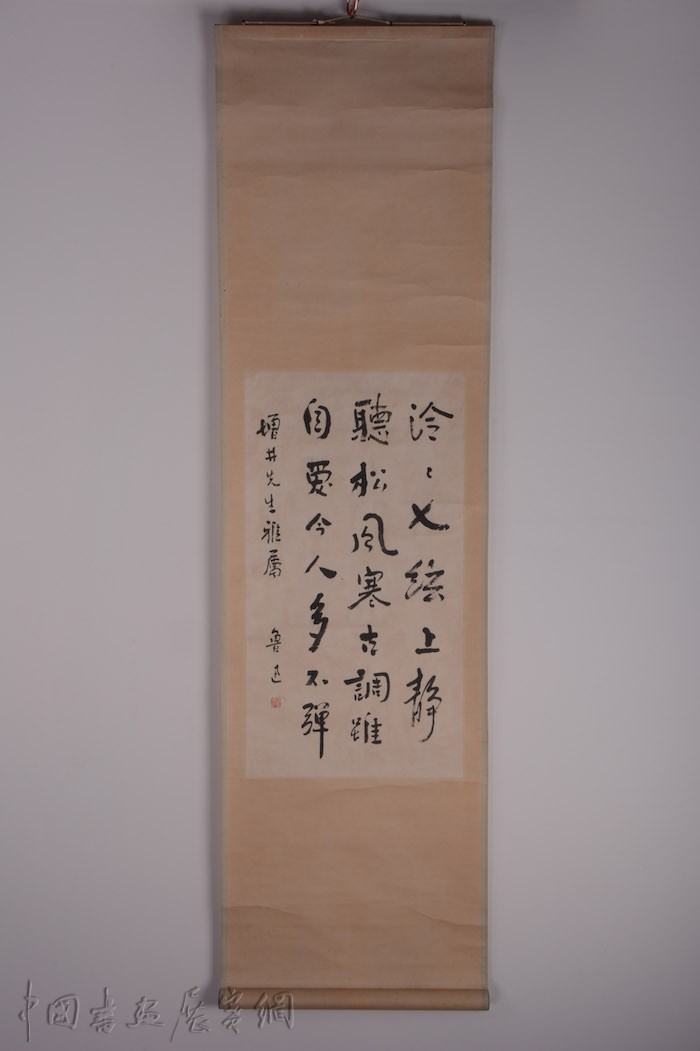 泠〻七絃上靜
聽松風寒古調雖
自愛今人多不彈
增井先生雅屬
魯迅
中國書畫展賣網